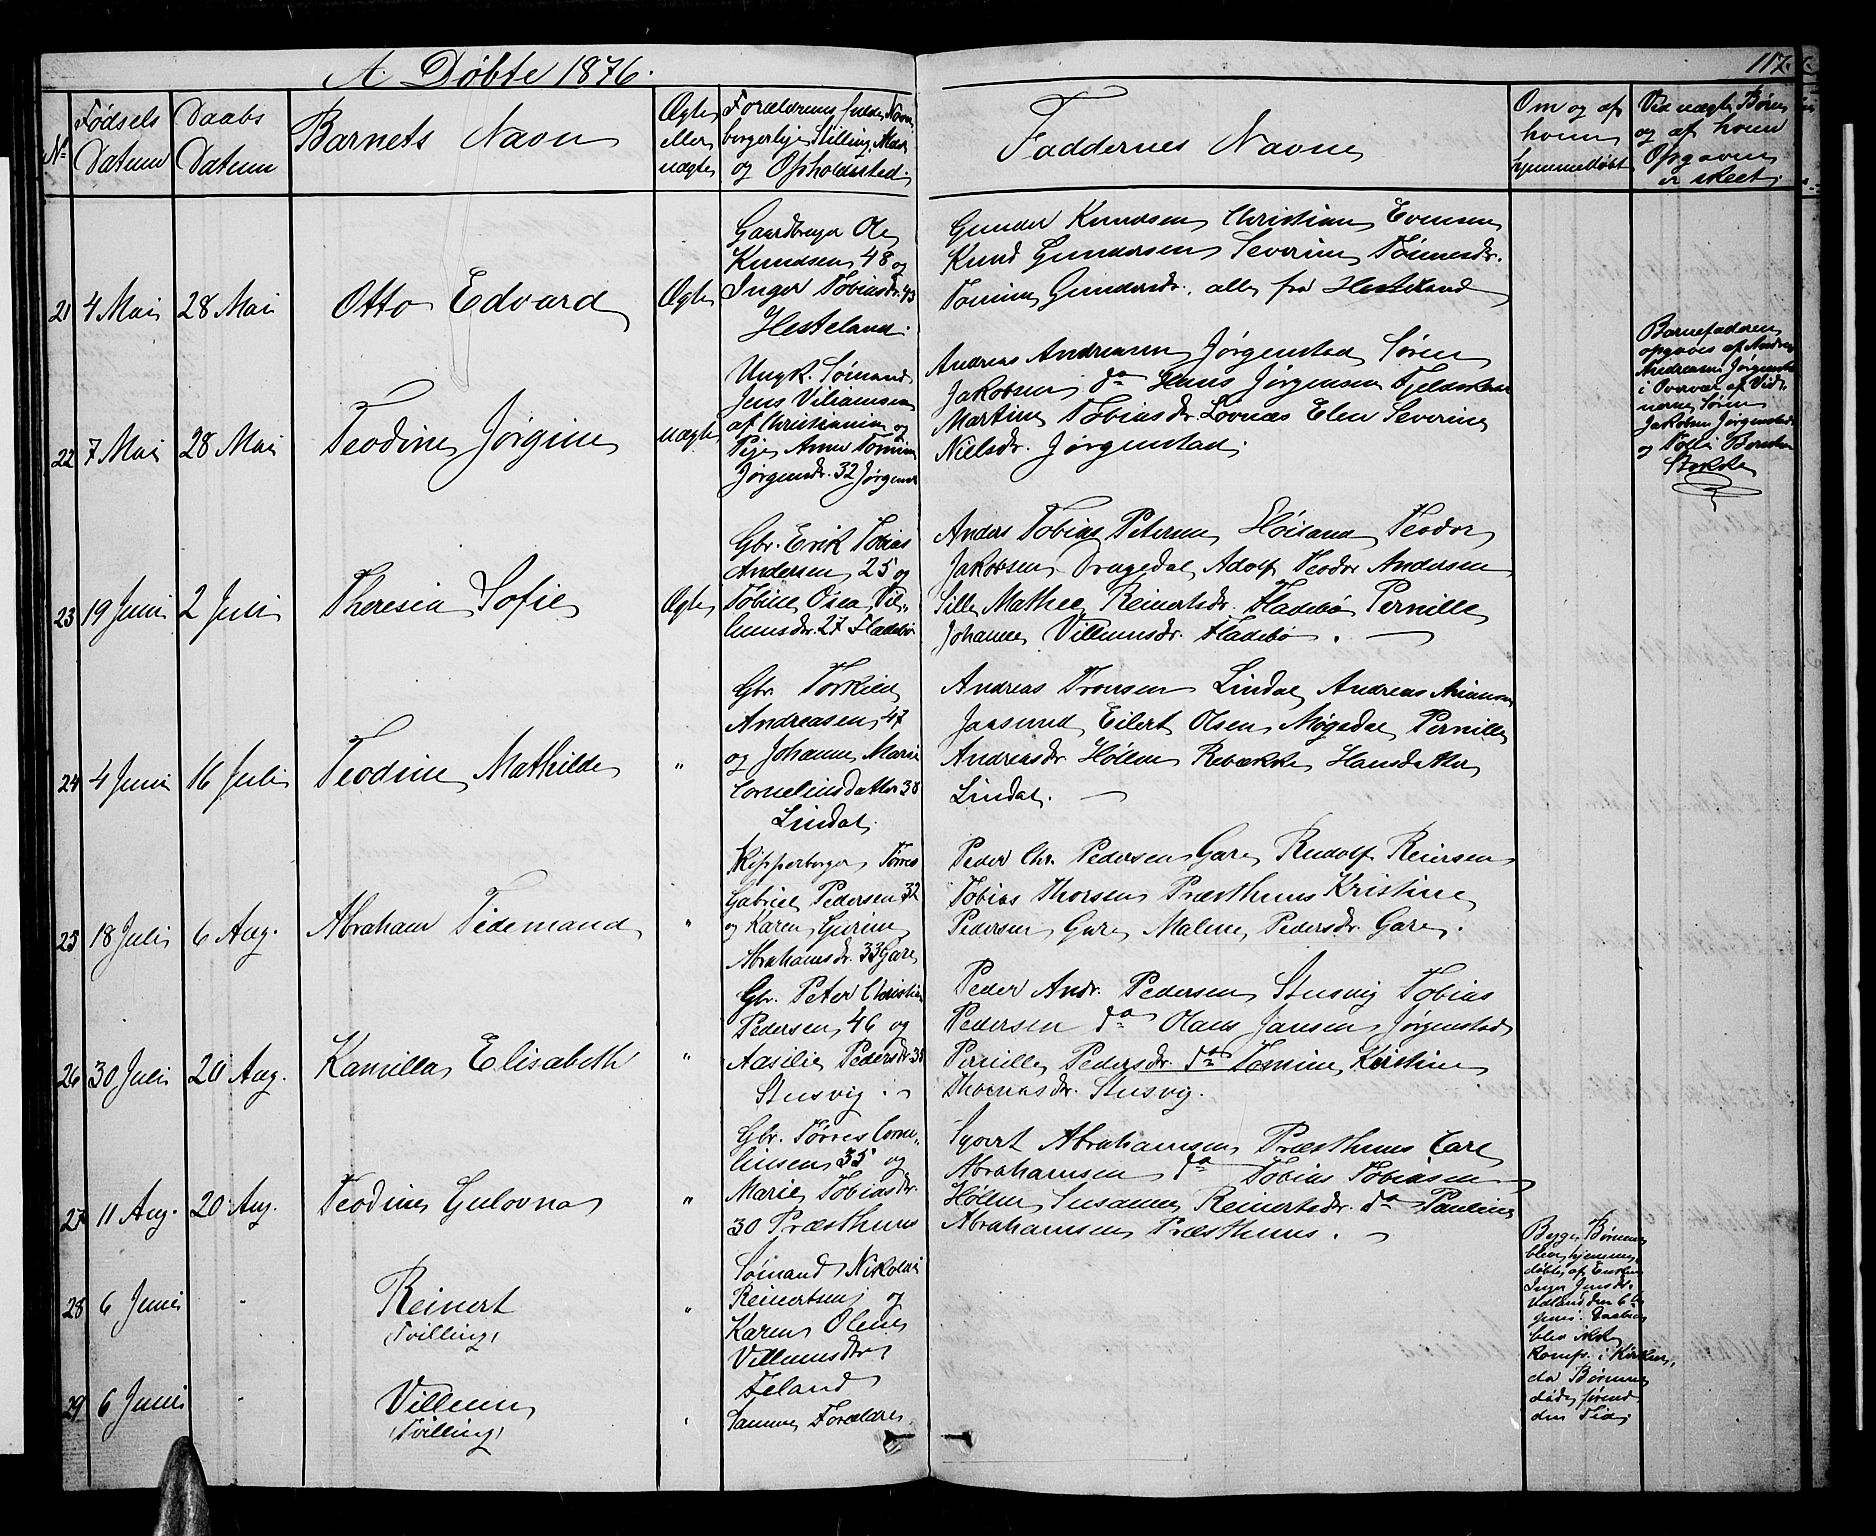 A. Døbte 1876.
117.
No
Fødsels Datum
Daabs Datum
Barnets Navn
Ægte eller uægte
Forældrenes fulde Navn borgerlige Stilling, Alder og Opholdssted.
Faddernes Navne
Om og af hvem hjemmedøbt
Ved uægte Børn og af hvem Opgaven er skeet.
21 4 Mai 28 Mai Otto Edvard Ægte
Gaardbruger Ole
Knudsen 48 og
Inger Tobiasdr. 43
Hesteland.
Gunder Knudsen Christian Evensen
Knud Gundersen Severine Tønnesdr.
Tomine Gundersdr. alle fra Hesteland
22 7 Mai 28 Mai Teodine Jørgine uægte
Ungk. Sømand
Jens Viliamsen
af Christiania og
Pige Anne Tomine
Jørgensdr. 32 Jørgenst
Andreas Andreasen Jørgenstad Søren
Jakobsen do Hans Jørgensen Fjeldskaar
Martine Tobiasdr. Løvnæs Elen Severine
Nielsdr. Jørgenstad.
Barnefaderen
opgaves af Andreas
Andreasen Jørgenstad
i Overvær af Vid-
nerne Søren
Jakobsen Jørgenstad
og Tollei
23 19 Juni 2 Juli Theresia Sofie Ægte
Gbr. Erik Tobias
Andersen 25 og
Tobine Osea Vil-
lumsdr. 27 Fladebø
Anders Tobias Petersen Høiland Teodor
Jakobsen Dragedal Adolf Teodor Andersen
Sille Mathea Reinertsdr. Fladebø Pernille
Johanne Villumsdr. Fladebø.
24 4 Juni 16 Juli Teodine Mathilde "
Gbr Torkild
Andreasen 47
og Johanne Marie
Corneliusdatter 38
Lindal.
Andreas Tronsen Lindal Andreas
Jaasund Eilert Olsen Møgedal Pernille
Andreasdr. Hollen Rebække Hansdatter
Lindal.
25 18 Juli 6 Aug. Abraham Tidemand "
Tørres
Gabriel Pedersen 32
og Karen Gurine
Abrahamsdr. 33 Gare
Peder Chr. Pedersen Gare Rudolf Reiersen
Tobias Thorsen Præsthuus Kristine
Pedersen Gare Malene Pedersdr. Gare.
26 30 Juli 20 Aug. Kamilla Elisabeth "
Gbr. Peter Christian
Pedersen 46 og
Aasilie Pedersdr. 38
Stusvig.
Peder Andr. Pedersen Stusvig Tobias
Pedersen do Olaus Jansen Jørgenstad
Pernille Pedersdr. do Tomine Kristine
Thomasdr. Stusvig.
27 11 Aug. 20 Aug. Teodine Gulovna "
Gbr. Tørres Corne-
liusen 35 og
Marie Tobiasdr.
30 Præsthuus
Syvert Abrahamsen Præsthuus Carl
Abrahamsen do Tobias Tobiasen
Hollen Susanne Reinertsdr. do Pauline
Abrahamsen Præsthuus.
28 6 Juni " Reinert
(Tvilling)
"
Sømand Nikolai
Reinertsen og
Karen Olene
Villumsdr.
Feland
Begge Børnene
blev hjemme-
døbte af Enken
Inger Jensdr.
Udland den 6te
Juni. Daaben
blev ikke
komfr. i Kirken,
da Børnene
døde forend
den Tid.
29 6 Juni " Villum
(Tvilling)
"
Samme Forældre.